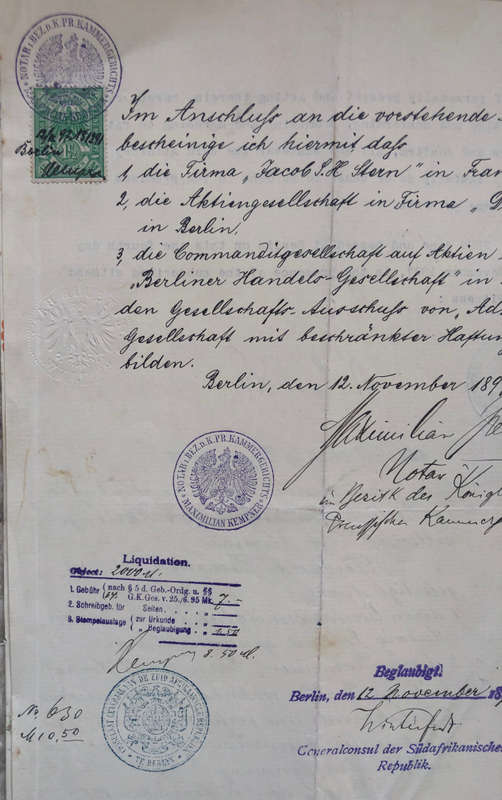 NOTAR i. BEZ. D. K. PR. KAMMERGERICHTS
Berlin
Im Anschluss an die vorstehende
bescheinige ich hiermit dass
1, die Firma „Jacob S. H. Stern" in Fran
2, die Aktiengesellschaft in Firma „
in Berlin,
3, die Commanditgesellschaft auf Aktien
„Berliner Handels-Gesellschaft" in
den Gesellschafts-Ausschuss von „Ad.
Gesellschaft mit beschränkter Haftun
bilden.
Berlin, den 12. November 189
Maximilian
Notar
im Bezirk des König
Preussischen Kammerg
NOTAR i. BEZ. D. K. PR. KAMMERGERICHTS
MAXIMILIAN KEMPNER
Liquidation.
Object: 2000 M.
1. Gebühr nach § 5 d. Geb.-Ordg. u. §§
G.K.Ges. v. 25./6. 95 Mk. 7.-
2. Schreibgeb. für Seiten . . . „
3. Stempelauslage zur Urkunde . . „
„ Beglaubigung . „ 1.50
Kempner 8.50 M.
No 630
M 10,50
TE BERLIJN
Beglaubigt.
Berlin, den 12 November 18
Generalconsul der Südafrikanischen
Republik.